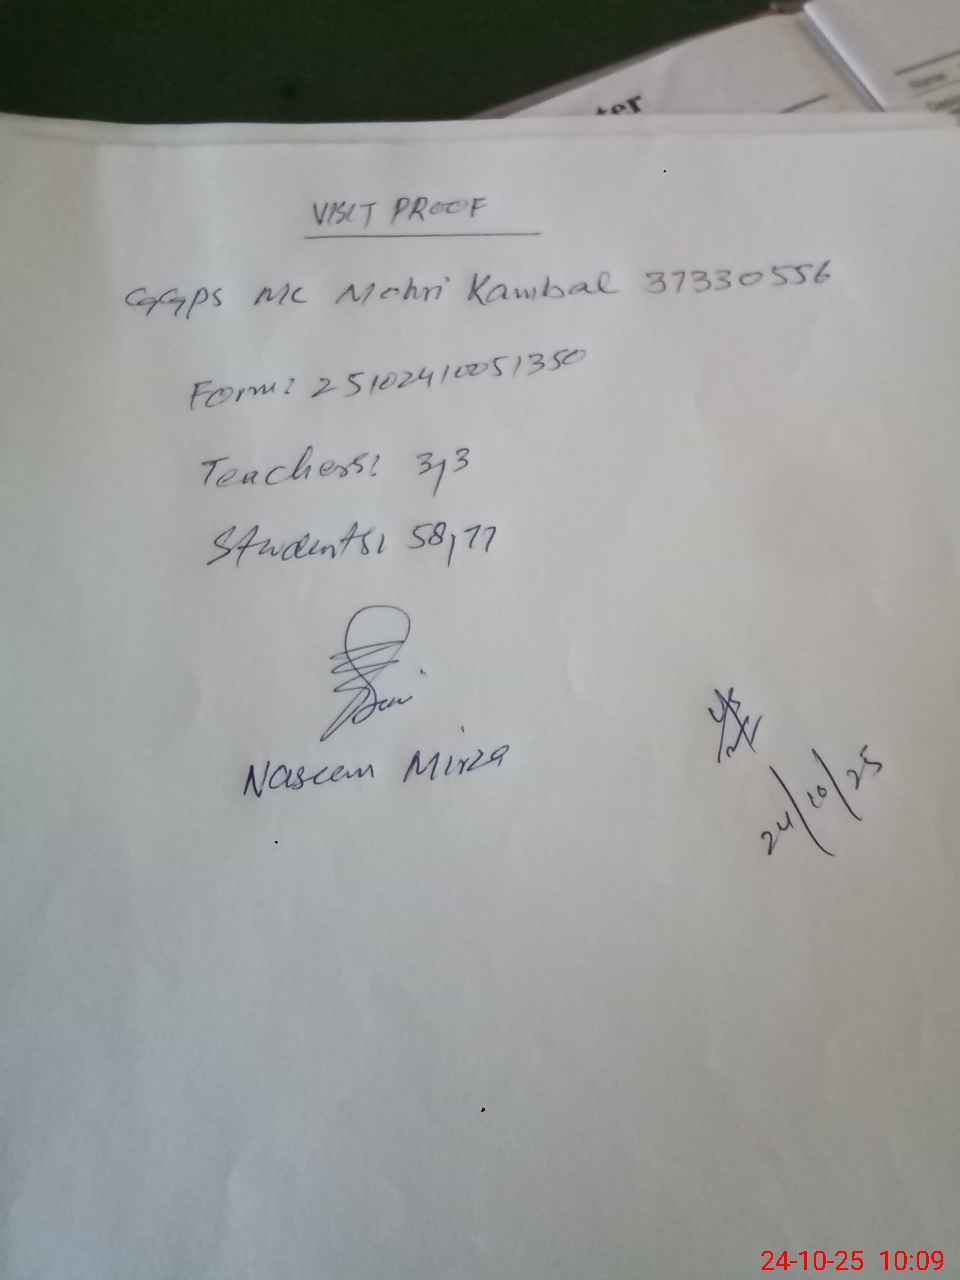 ter
Name
VISIT PROOF
GGPS MC Mohri Kambal 37330556
Form: 25102410051350
Teachers: 3,3
Students: 58,77
Naseem Mirza
24/10/25
24-10-25 10:09